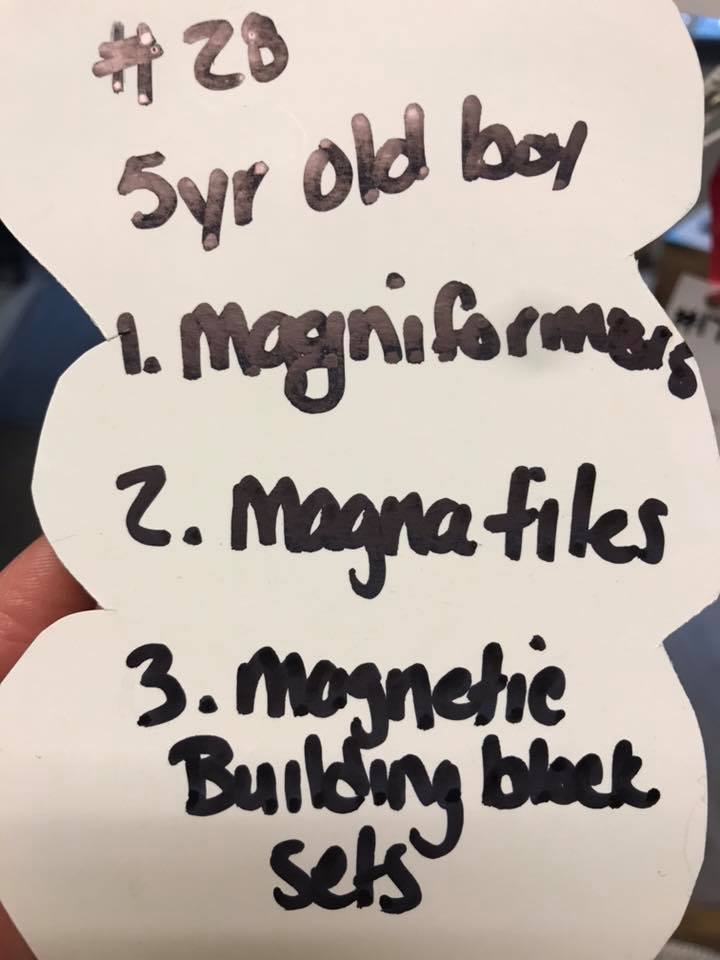 #28
5yr old boy
1. Magniformers
2. Magnatiles
3. Magnetic
Building block
sets